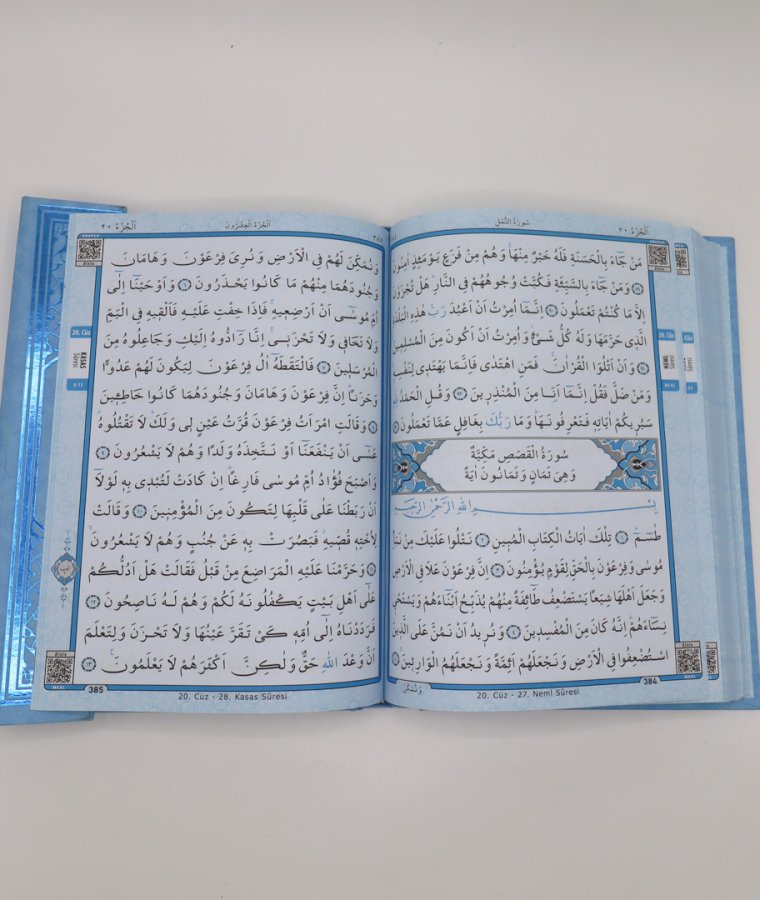 اَلْجُزْءُ ٢٠
سُورَةُ النَّمْلِ
مَنْ جَٓاءَ بِالْحَسَنَةِ فَلَهُ خَيْرٌ مِنْهَاۚ وَهُمْ مِنْ فَزَعٍ يَوْمَئِذٍ اٰمِنُونَ
﴿٨٩﴾ وَمَنْ جَٓاءَ بِالسَّيِّئَةِ فَكُبَّتْ وُجُوهُهُمْ فِي النَّارِۜ هَلْ تُجْزَوْنَ
اِلَّا مَا كُنْتُمْ تَعْمَلُونَ ﴿٩٠﴾ اِنَّمَٓا اُمِرْتُ اَنْ اَعْبُدَ رَبَّ هٰذِهِ الْبَلْدَةِ
الَّذ۪ي حَرَّمَهَا وَلَهُ كُلُّ شَيْءٍۘ وَاُمِرْتُ اَنْ اَكُونَ مِنَ الْمُسْلِم۪ينَ
﴿٩١﴾ وَاَنْ اَتْلُوَا الْقُرْاٰنَۚ فَمَنِ اهْتَدٰى فَاِنَّمَا يَهْتَد۪ي لِنَفْسِه۪ۚ
وَمَنْ ضَلَّ فَقُلْ اِنَّمَٓا اَنَا۬ مِنَ الْمُنْذِر۪ينَ ﴿٩٢﴾ وَقُلِ الْحَمْدُ لِلّٰهِ
سَيُر۪يكُمْ اٰيَاتِه۪ فَتَعْرِفُونَهَاۜ وَمَا رَبُّكَ بِغَافِلٍ عَمَّا تَعْمَلُونَ
سُورَةُ الْقَصَصِ مَكِّيَّةٌ
وَهِيَ ثَمَانٍ وَثَمَانُونَ اٰيَةً
بِسْمِ اللّٰهِ الرَّحْمٰنِ الرَّح۪يمِ
طٰسٓمٓ ﴿١﴾ تِلْكَ اٰيَاتُ الْكِتَابِ الْمُب۪ينِ ﴿٢﴾ نَتْلُوا عَلَيْكَ مِنْ نَبَأِ
مُوسٰى وَفِرْعَوْنَ بِالْحَقِّ لِقَوْمٍ يُؤْمِنُونَ ﴿٣﴾ اِنَّ فِرْعَوْنَ عَلَا فِي الْاَرْضِ
وَجَعَلَ اَهْلَهَا شِيَعًا يَسْتَضْعِفُ طَٓائِفَةً مِنْهُمْ يُذَبِّحُ اَبْنَٓاءَهُمْ وَيَسْتَحْي۪
نِسَٓاءَهُمْۜ اِنَّهُ كَانَ مِنَ الْمُفْسِد۪ينَ ﴿٤﴾ وَنُر۪يدُ اَنْ نَمُنَّ عَلَى الَّذ۪ينَ
اسْتُضْعِفُوا فِي الْاَرْضِ وَنَجْعَلَهُمْ اَئِمَّةً وَنَجْعَلَهُمُ الْوَارِث۪ينَۙ ﴿٥﴾
وَنُمَكِّنَ
384
20. Cüz - 27. Neml Sûresi
اَلْجُزْءُ الْعِشْرُونَ
اَلْجُزْءُ ٢٠
وَنُمَكِّنَ لَهُمْ فِي الْاَرْضِ وَنُرِيَ فِرْعَوْنَ وَهَامَانَ
وَجُنُودَهُمَا مِنْهُمْ مَا كَانُوا يَحْذَرُونَ ﴿٦﴾ وَاَوْحَيْنَٓا اِلٰٓى
اُمِّ مُوسٰٓى اَنْ اَرْضِع۪يهِۚ فَاِذَا خِفْتِ عَلَيْهِ فَاَلْق۪يهِ فِي الْيَمِّ
وَلَا تَخَاف۪ي وَلَا تَحْزَن۪يۚ اِنَّا رَٓادُّوهُ اِلَيْكِ وَجَاعِلُوهُ مِنَ
الْمُرْسَل۪ينَ ﴿٧﴾ فَالْتَقَطَهُٓ اٰلُ فِرْعَوْنَ لِيَكُونَ لَهُمْ عَدُوًّا
وَحَزَنًاۜ اِنَّ فِرْعَوْنَ وَهَامَانَ وَجُنُودَهُمَا كَانُوا خَاطِـ۪ٔينَ
﴿٨﴾ وَقَالَتِ امْرَاَتُ فِرْعَوْنَ قُرَّتُ عَيْنٍ ل۪ي وَلَكَۜ لَا تَقْتُلُوهُۗ
عَسٰٓى اَنْ يَنْفَعَنَٓا اَوْ نَتَّخِذَهُ وَلَدًا وَهُمْ لَا يَشْعُرُونَ ﴿٩﴾
وَاَصْبَحَ فُؤٰادُ اُمِّ مُوسٰى فَارِغًاۜ اِنْ كَادَتْ لَتُبْد۪ي بِه۪ لَوْلَٓا
اَنْ رَبَطْنَا عَلٰى قَلْبِهَا لِتَكُونَ مِنَ الْمُؤْمِن۪ينَ ﴿١٠﴾ وَقَالَتْ
لِاُخْتِه۪ قُصّ۪يهِۘ فَبَصُرَتْ بِه۪ عَنْ جُنُبٍ وَهُمْ لَا يَشْعُرُونَۙ
﴿١١﴾ وَحَرَّمْنَا عَلَيْهِ الْمَرَاضِعَ مِنْ قَبْلُ فَقَالَتْ هَلْ اَدُلُّكُمْ
عَلٰٓى اَهْلِ بَيْتٍ يَكْفُلُونَهُ لَكُمْ وَهُمْ لَهُ نَاصِحُونَ ﴿١٢﴾
فَرَدَدْنَاهُ اِلٰٓى اُمِّه۪ كَيْ تَقَرَّ عَيْنُهَا وَلَا تَحْزَنَ وَلِتَعْلَمَ
اَنَّ وَعْدَ اللّٰهِ حَقٌّ وَلٰكِنَّ اَكْثَرَهُمْ لَا يَعْلَمُونَ۟ ﴿١٣﴾
20. Cüz
KASAS
SÛRESİ
385
20. Cüz - 28. Kasas Sûresi